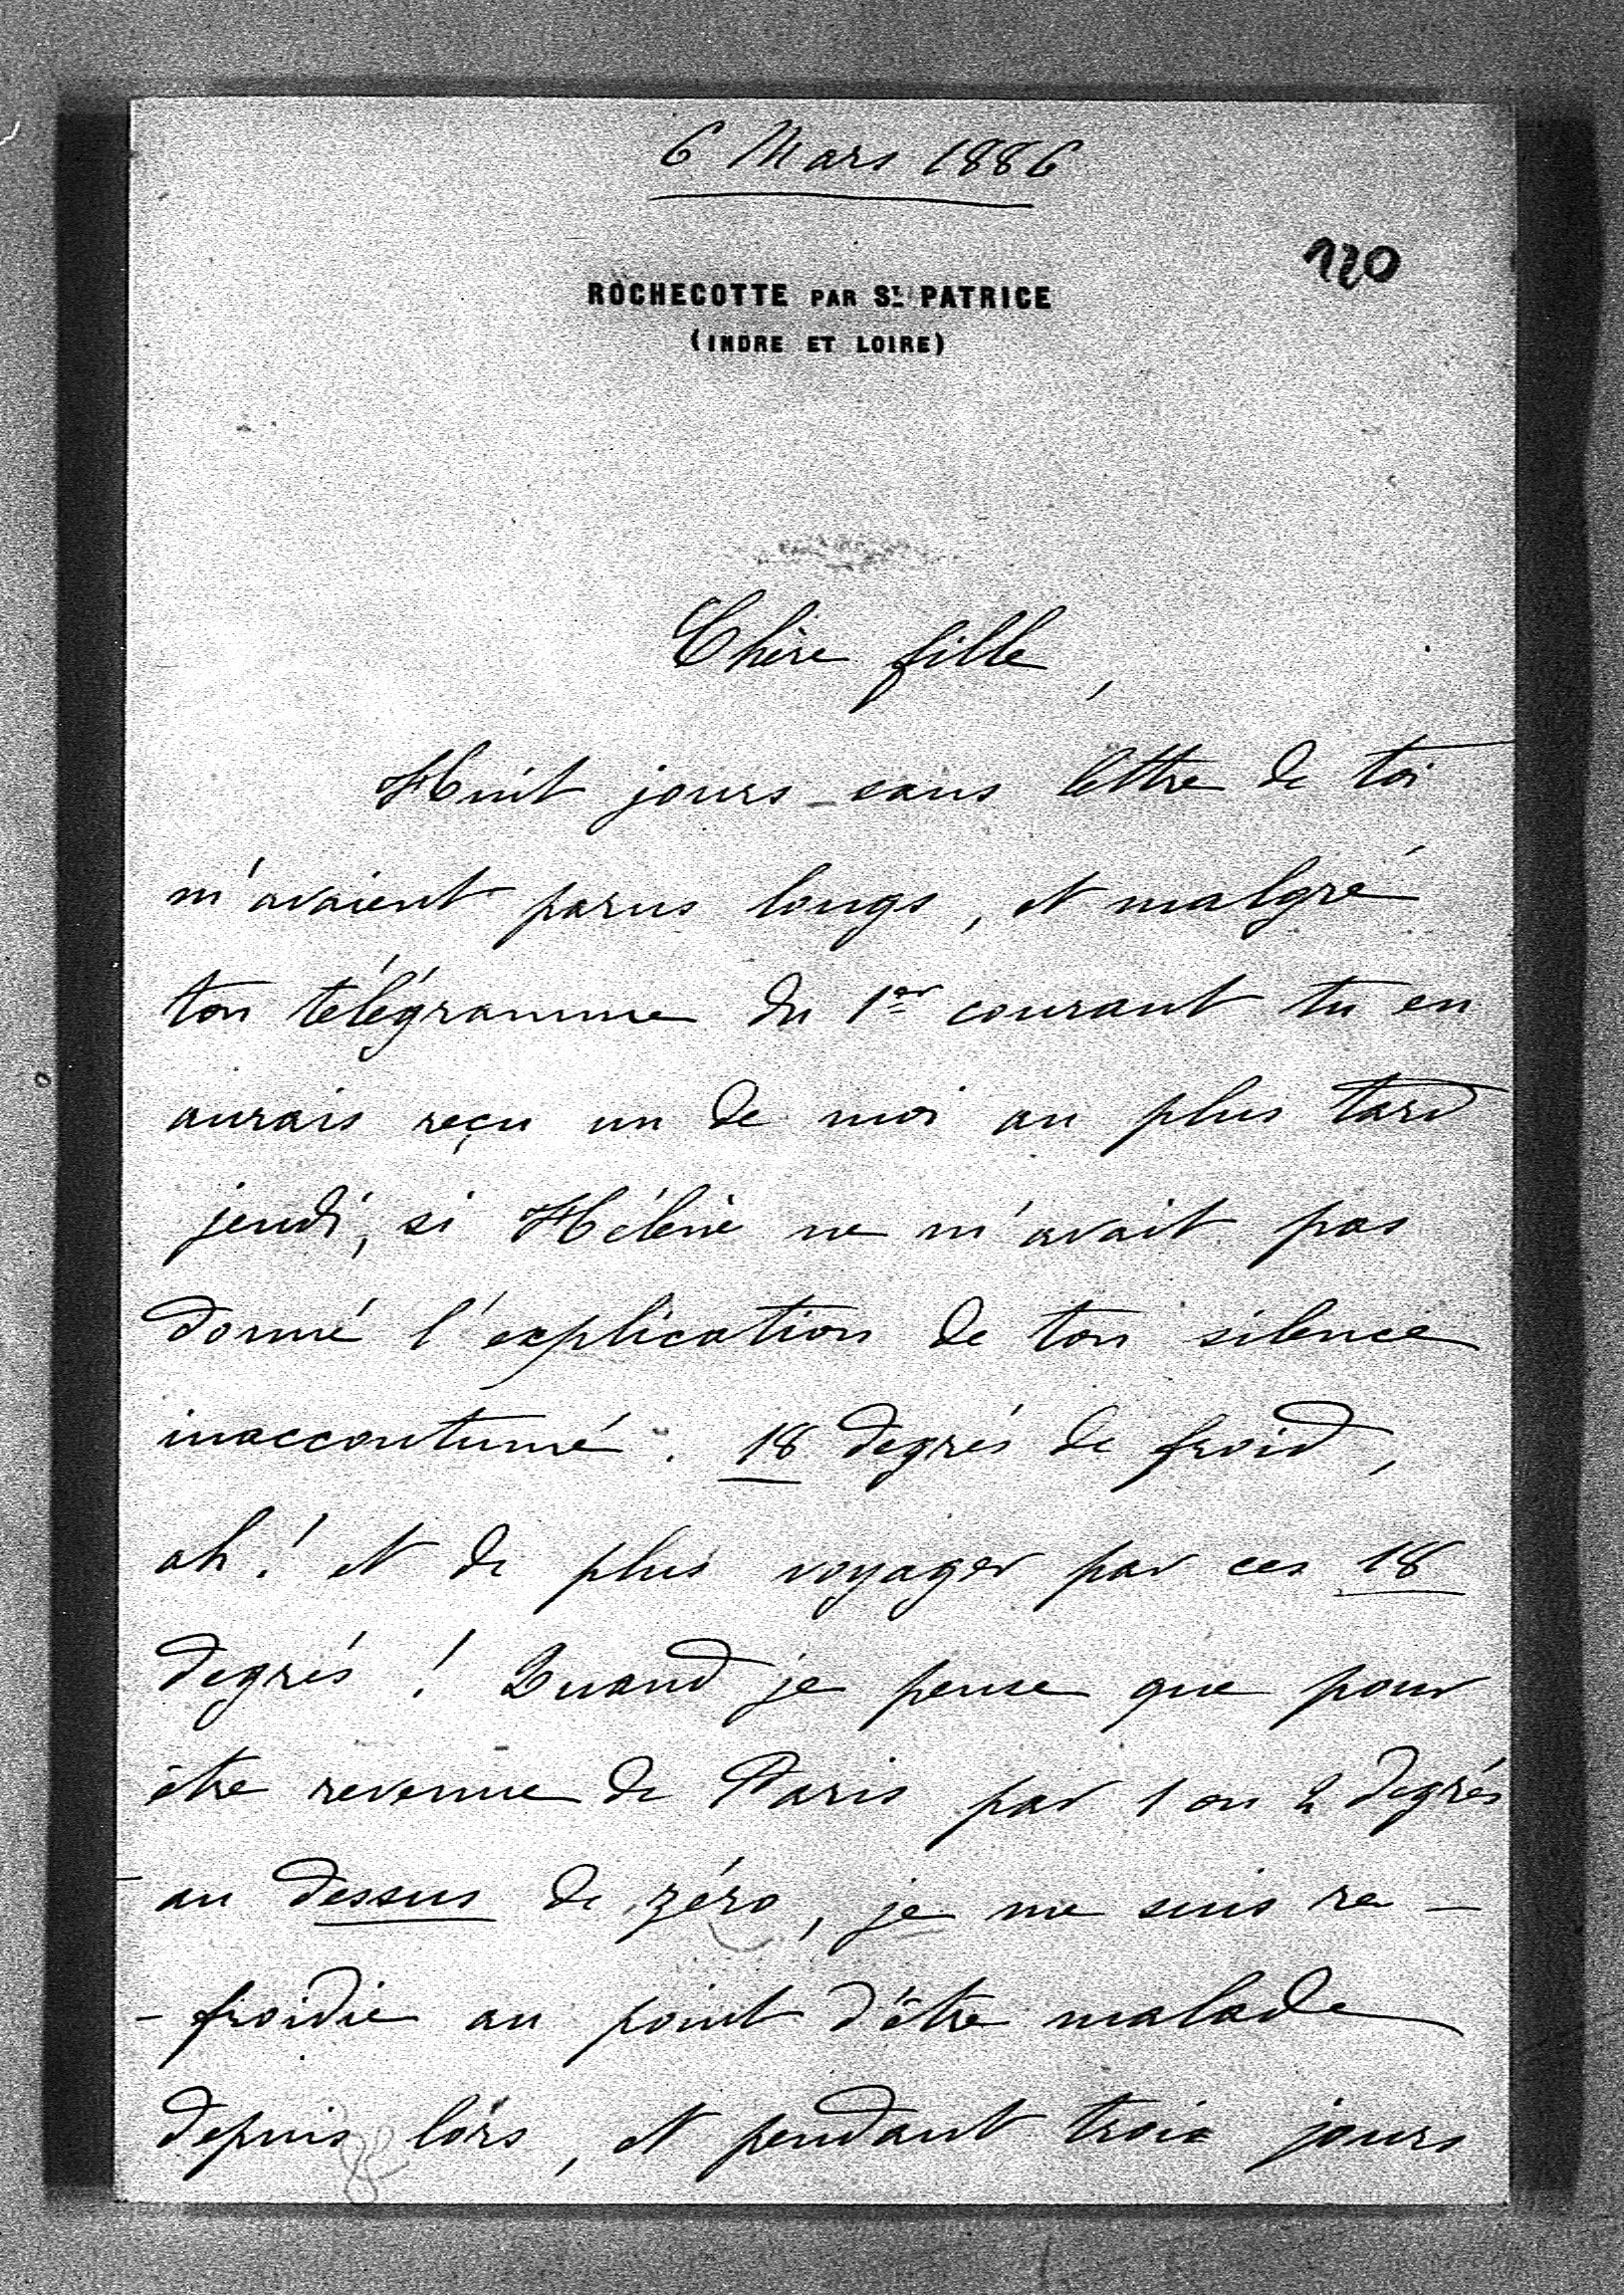 6 Mars 1886
120
ROCHECOTTE PAR ST. PATRICE
(INDRE ET LOIRE)
Chère fille,
Huit jours sans lettre de toi
m'avaient parus longs, et malgré
ton télégramme du 1er courant tu en
aurais reçu un de moi au plus tard
jeudi, si Hélène ne m'avait pas
donné l'explication de ton silence
inaccoutumé. 18 degrés de froid,
ah! et de plus voyager par ces 18
degrés! Quand je pense que pour
être revenue de Paris par 1 ou 2 degrés
au dessus de zéro, je me suis re-
-froidie au point d'être malade
depuis lors, et pendant trois jours